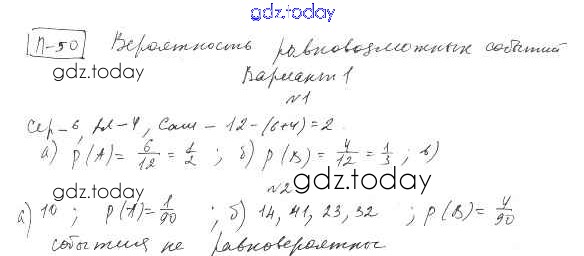 gdz.today
П-50 Вероятность равновозможных событий
gdz.today
Вариант 1
№1
Сер - 6, Ал - 4, Сам - 12-(6+4)=2
а) P(A)= 6/12 = 1/2 ; б) P(B)= 4/12 = 1/3 ; в)
gdz.today
№2
gdz.today
а) 10 ; P(A)= 1/90 ; б) 14, 41, 23, 32 ; P(B)= 4/90
события не равновероятны
gdz.today